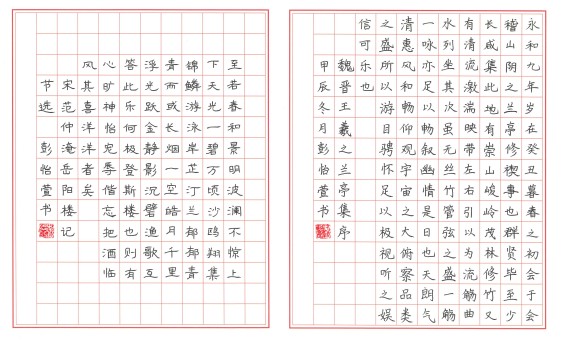 永和九年岁在癸丑暮春之初会于会
稽山阴之兰亭修禊事也群贤毕至少
长咸集此地有崇山峻岭茂林修竹又
有清流激湍映带左右引以为流觞曲
水列坐其次虽无丝竹管弦之盛一觞
一咏亦足以畅叙幽情是日也天朗气
清惠风和畅仰观宇宙之大俯察品类
之盛所以游目骋怀足以极视听之娱
信可乐也
魏晋王羲之兰亭集序
甲辰冬月彭怡萱书
至若春和景明波澜不惊上
下天光一碧万顷沙鸥翔集
锦鳞游泳岸芷汀兰郁郁青
青而或长烟一空皓月千里
浮光跃金静影沉璧渔歌互
答此乐何极登斯楼也则有
心旷神怡宠辱偕忘把酒临
风其喜洋洋者矣
宋范仲淹岳阳楼记
节选 彭怡萱书